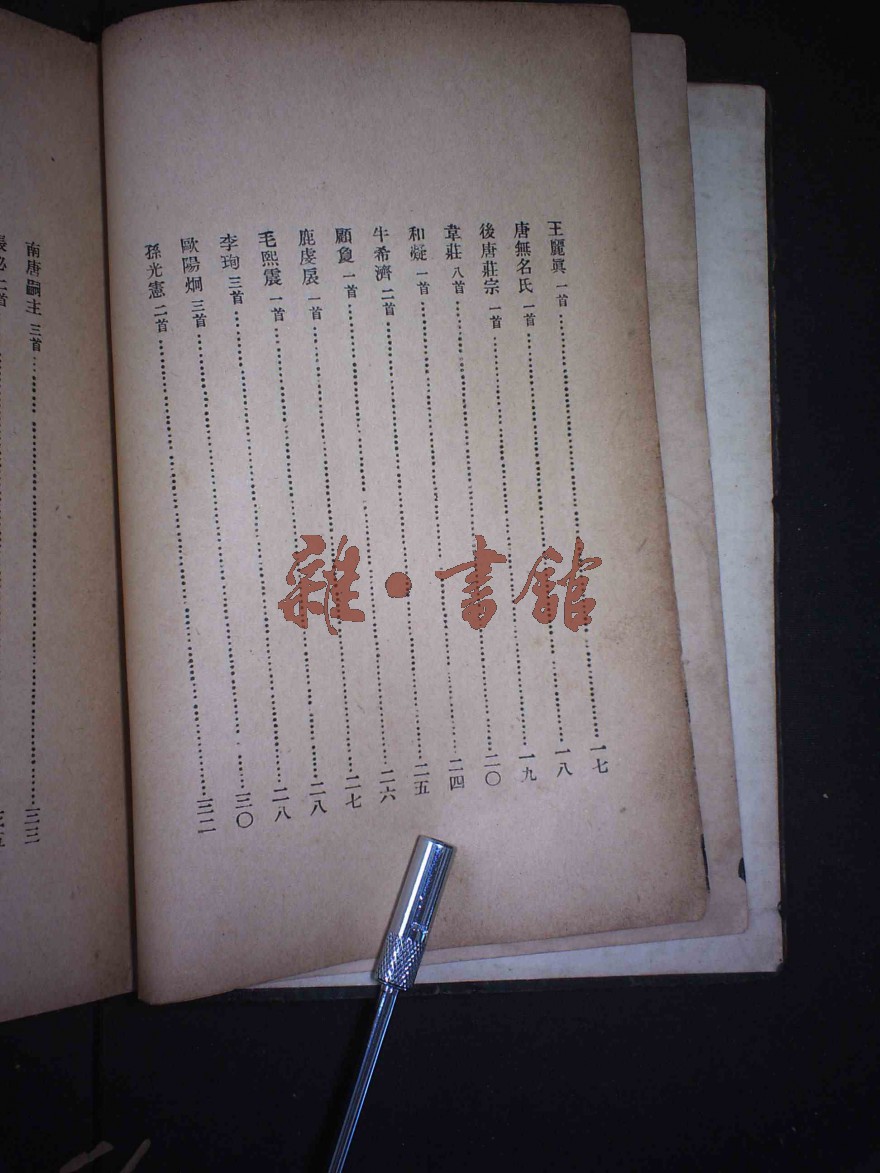 王麗眞 一首……一七
唐無名氏 一首……一八
後唐莊宗 一首……一九
韋莊 八首……二〇
和凝 一首……二四
牛希濟 二首……二五
顧夐 一首……二六
鹿虔扆 一首……二七
毛熙震 一首……二八
李珣 三首……二八
歐陽炯 三首……三〇
孫光憲 二首……三二
南唐嗣主 三首……三三
雜·書館